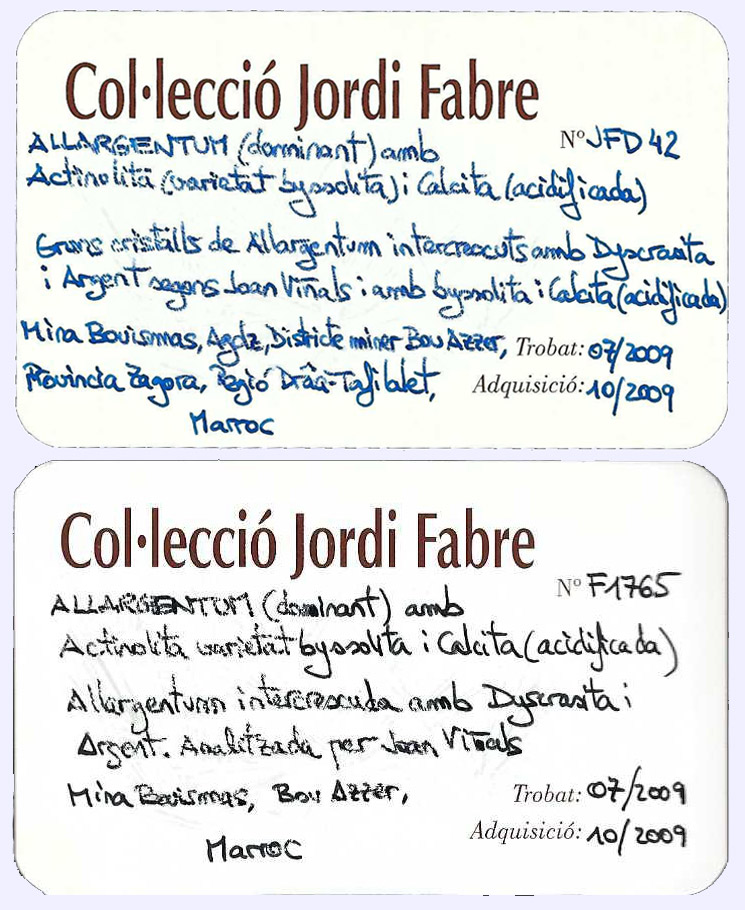 Col·lecció Jordi Fabre
Nº JFD 42
ALLARGENTUM (dominant) amb
Actinolita (varietat byssolita) i Calcita (acidificada)
Grans cristalls de Allargentum intercrescuts amb Dyscrasita
i Argent segons Joan Viñals i amb byssolita i Calcita (acidificada)
Mina Bouismas, Agdz, Districte miner Bou Azzer,
Trobat: 07/2009
Província Zagora, Regió Drâa-Tafilalet,
Adquisició: 10/2009
Marroc
Col·lecció Jordi Fabre
Nº F1765
ALLARGENTUM (dominant) amb
Actinolita varietat byssolita i Calcita (acidificada)
Allargentum intercrescuda amb Dyscrasita i
Argent. Analitzada per Joan Viñals
Mina Bouismas, Bou Azzer,
Trobat: 07/2009
Marroc
Adquisició: 10/2009